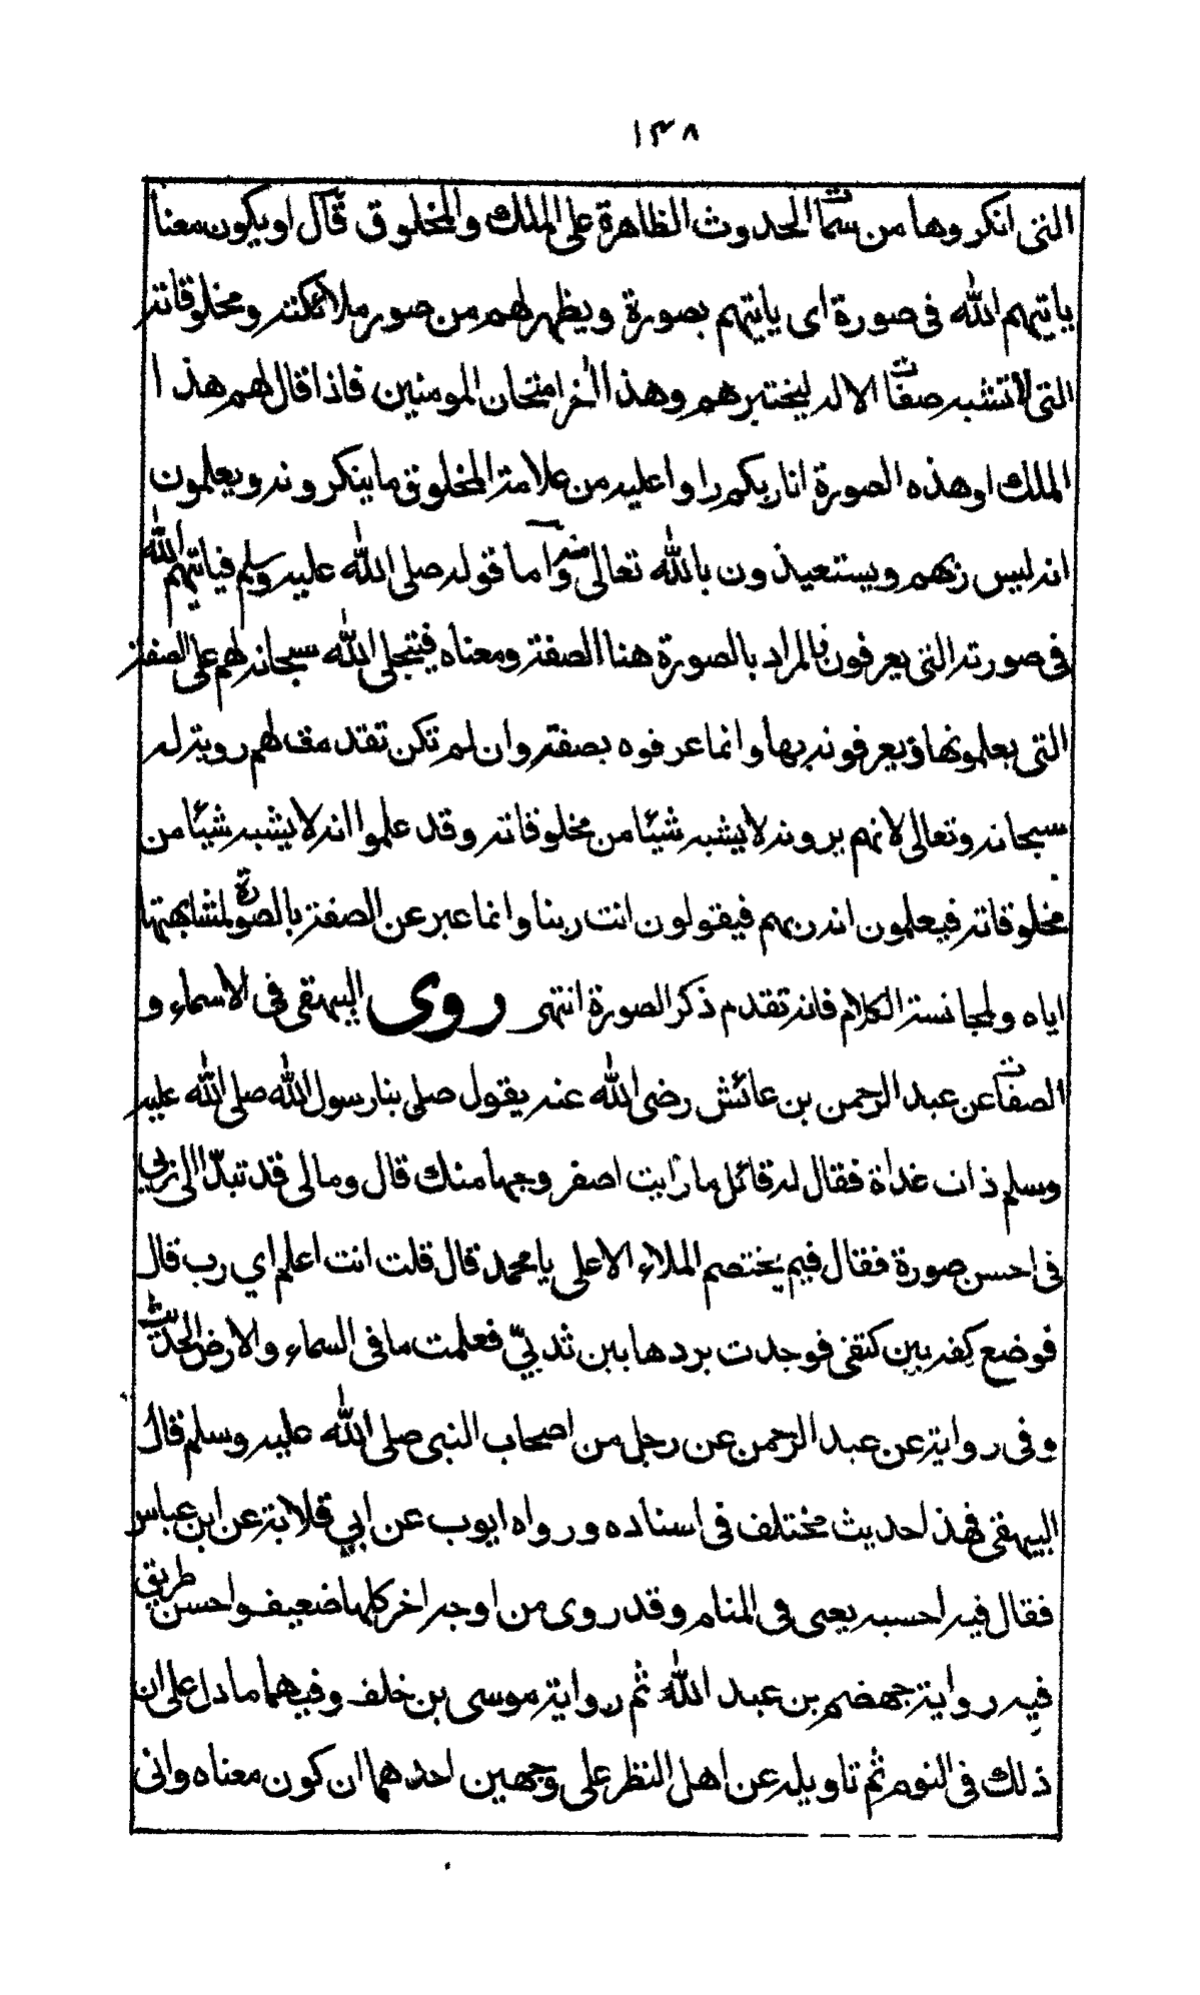 ١٣٨
التى انكروها من سمات الحدوث الظاهرة على الملك والمخلوق قال او يكون معنا
ياتيهم الله فى صورة اى ياتيهم بصورة ويظهر لهم من صور ملائكته ومخلوقاته
التى لا تشبه صفات الاله ليختبرهم وهذا اخر امتحان المومنين فاذا قال لهم هذا
الملك او هذه الصورة انا ربكم راوا عليه من علامة المخلوق ما ينكرونه ويعلمون
انه ليس ربهم ويستعيذون بالله تعالى منه واما قوله صلى الله عليه وسلم فياتيهم الله
فى صورته التى يعرفون فالمراد بالصورة هنا الصفة ومعناه فيتجلى الله سبحانه لهم على الصفة
التى يعلمونها ويعرفونه بها وانما عرفوه بصفته وان لم تكن تقدمت لهم روية له
سبحانه وتعالى لانهم يرونه لا يشبه شيئا من مخلوقاته وقد علموا انه لا يشبه شيئا من
مخلوقاته فيعلمون انه ربهم فيقولون انت ربنا وانما عبر عن الصفة بالصورة لمشابهتها
اياه ولمجانسة الكلام فانه تقدم ذكر الصورة انتهى روى البيهقى فى الاسماء و
الصفات عن عبد الرحمن بن عائش رضى الله عنه يقول صلى بنا رسول الله صلى الله عليه
وسلم ذات غداة فقال له قائل ما رايت اصفر وجها منك قال ومالى قد تبدّا الى ربي
فى احسن صورة فقال فيم يختصم الملاء الاعلى يا محمد قال قلت انت اعلم اي رب قال
فوضع كفه بين كتفى فوجدت بردها بين ثدييّ فعلمت ما فى السماء والارض الحديث
وفى رواية عن عبد الرحمن عن رجل من اصحاب النبى صلى الله عليه وسلم قال
البيهقى فهذا حديث مختلف فى اسناده ورواه ايوب عن ابي قلابة عن ابن عباس
فقال فيه احسبه يعنى فى المنام وقد روى من اوجه اخر كلها ضعيف واحسن طريق
فيه رواية جهضم بن عبد الله ثم رواية موسى بن خلف وفيهما ما دل على ان
ذلك فى النوم ثم تاويله عن اهل النظر على وجهين احدهما ان كون معناه وانى